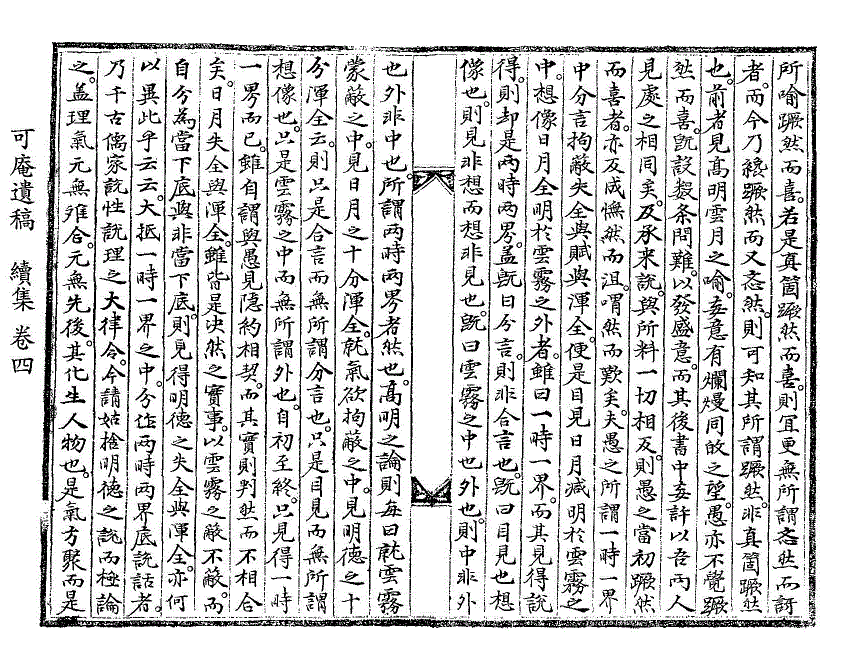 所喻蹶然而喜。若是真箇蹶然而喜。則宜更無所謂忞然而訝
者。而今乃繞蹶然而又忞然。則可知其所謂蹶然。非真箇蹶然
也。前者見高明雲月之喻。妄意有爛熳同的之望。愚亦不覺蹶
然而喜。旣設數条問難。以發盛意。而其後書中妄許以吾两人
見處之相同矣。及承來說。與所料一切相反。則愚之當初蹶然
而喜者。亦反成憮然而沮。喟然而歎矣。夫愚之所謂一時一界
中分言拘蔽失全與賦與渾全。便是目見日月㓕明於雲霧之
中。想像日月全明於雲霧之外者。雖曰一時一界。而其見得說
得。則却是两時两界。盖旣曰分言。則非合言也。旣曰目見也想
像也。則見非想而想非見也。旣曰雲霧之中也外也。則中非外
也外非中也。所謂两時两界者然也。高明之論則每曰就雲霧
蒙蔽之中。見日月之十分渾全。就氣欲拘蔽之中。見明德之十
分渾全云。則只是合言而無所謂分言也。只是目見而無所謂
想像也。只是雲霧之中而無所謂外也。自初至終。只見得一時
一界而已。雖自謂與愚見隱約相契。而其實則判然而不相合
矣。日月失全與渾全。雖皆是决然之實事。以雲霧之蔽不蔽。而
自分為當下底與非當下底。則見得明德之失全與渾全。亦何
以異此乎云云。大抵一時一界之中。分作两時两界底說話者。
乃千古儒家說性說理之大律令。今請姑捨明德之說而極論
之。盖理氣元無雖合。元無先後。其化生人物也。是氣方聚而是
可庵遺稿 續集 卷四